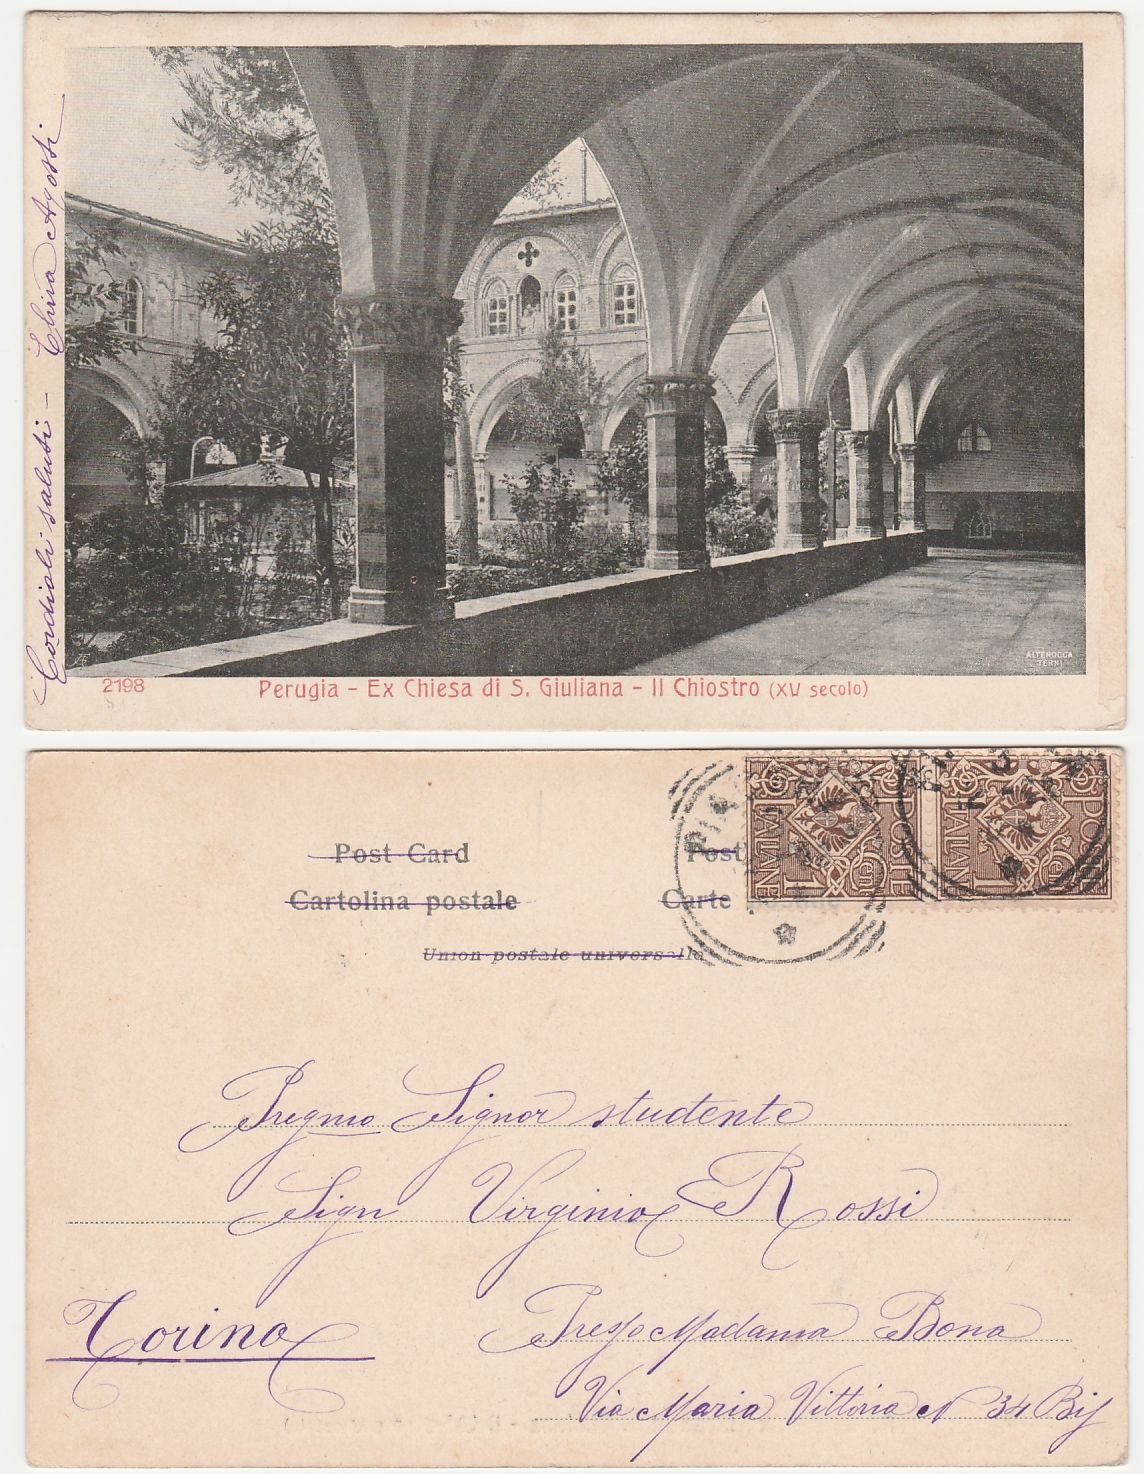 Cordiali saluti - Elvira Agosti
ALTEROCCA
TERNI
2198
Perugia - Ex Chiesa di S. Giuliana - Il Chiostro (XV secolo)
Post Card
Cartolina postale
Carte
Union postale universelle
POSTE ITALIANE
POSTE ITALIANE
Pregmo Signor studente
Sigr Virginio Rossi
Presso Madama Bona
Torino
Via Maria Vittoria N 34 Bis